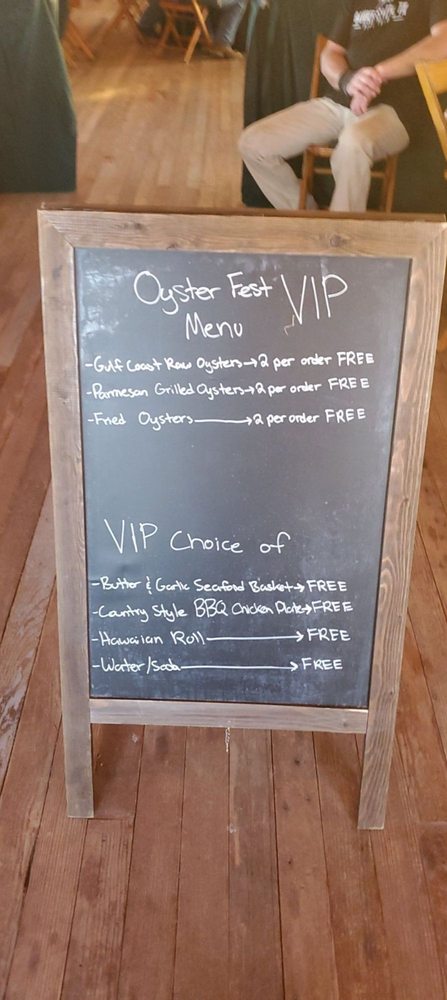 Oyster Fest VIP
Menu
-Gulf Coast Raw Oysters→2 per order FREE
-Parmesan Grilled Oysters→2 per order FREE
-Fried Oysters→2 per order FREE
VIP Choice of
-Butter & Garlic Seafood Basket→FREE
-Country Style BBQ Chicken Plate→FREE
-Hawaiian Roll→FREE
-Water/Soda→FREE